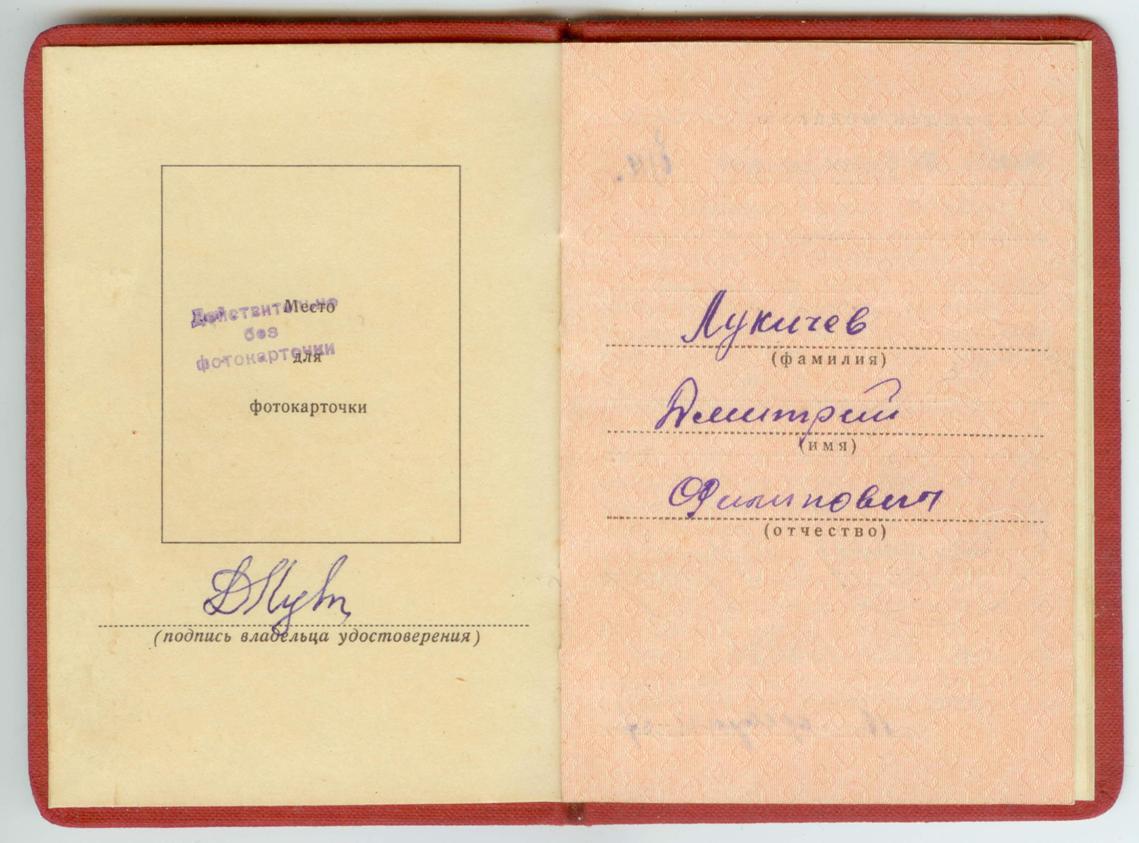 Место
Действительно
без
для
фотокарточки
фотокарточки
(подпись владельца удостоверения)
Лукичев
(фамилия)
Дмитрий
(имя)
Филиппович
(отчество)